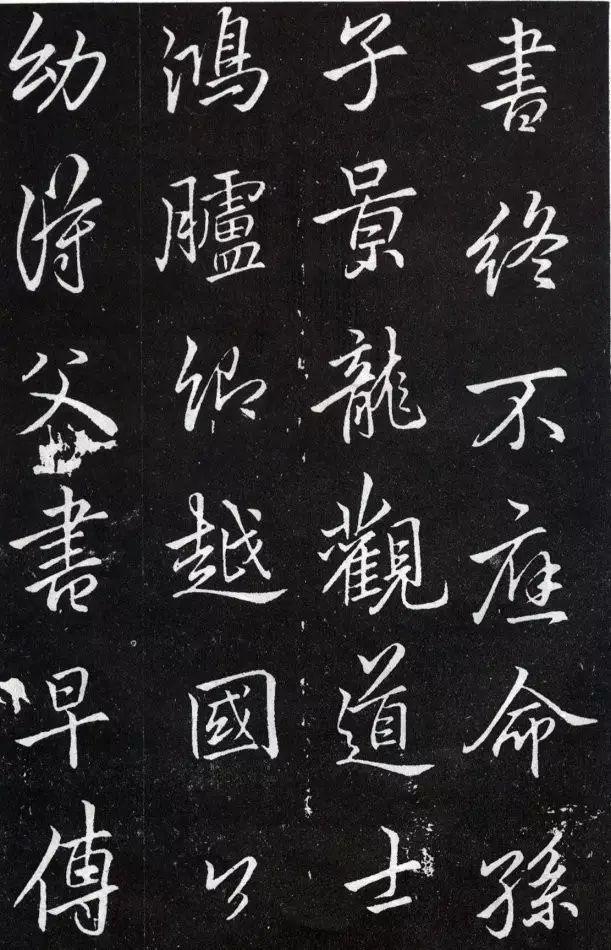 書終不應命孫
子景龍觀道士
鴻臚卿越國公
幼得父書早傳